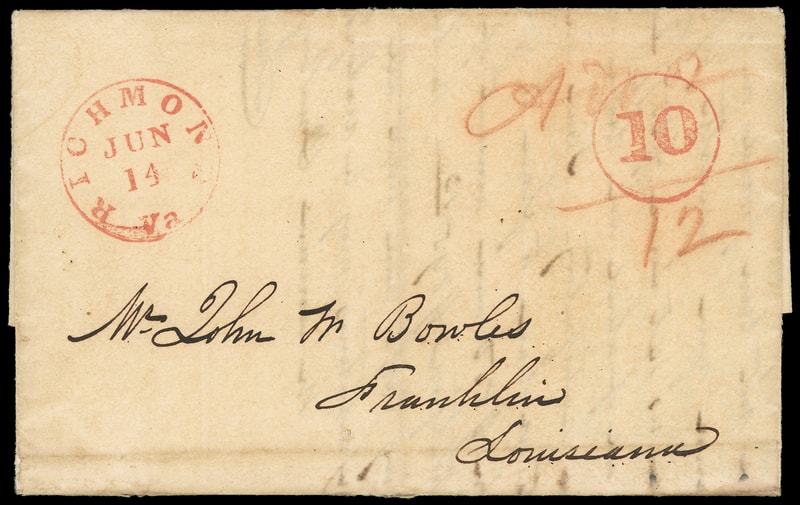 RICHMOND
JUN
14
Va
10
12
Mr John M Bowles
Franklin
Louisiana